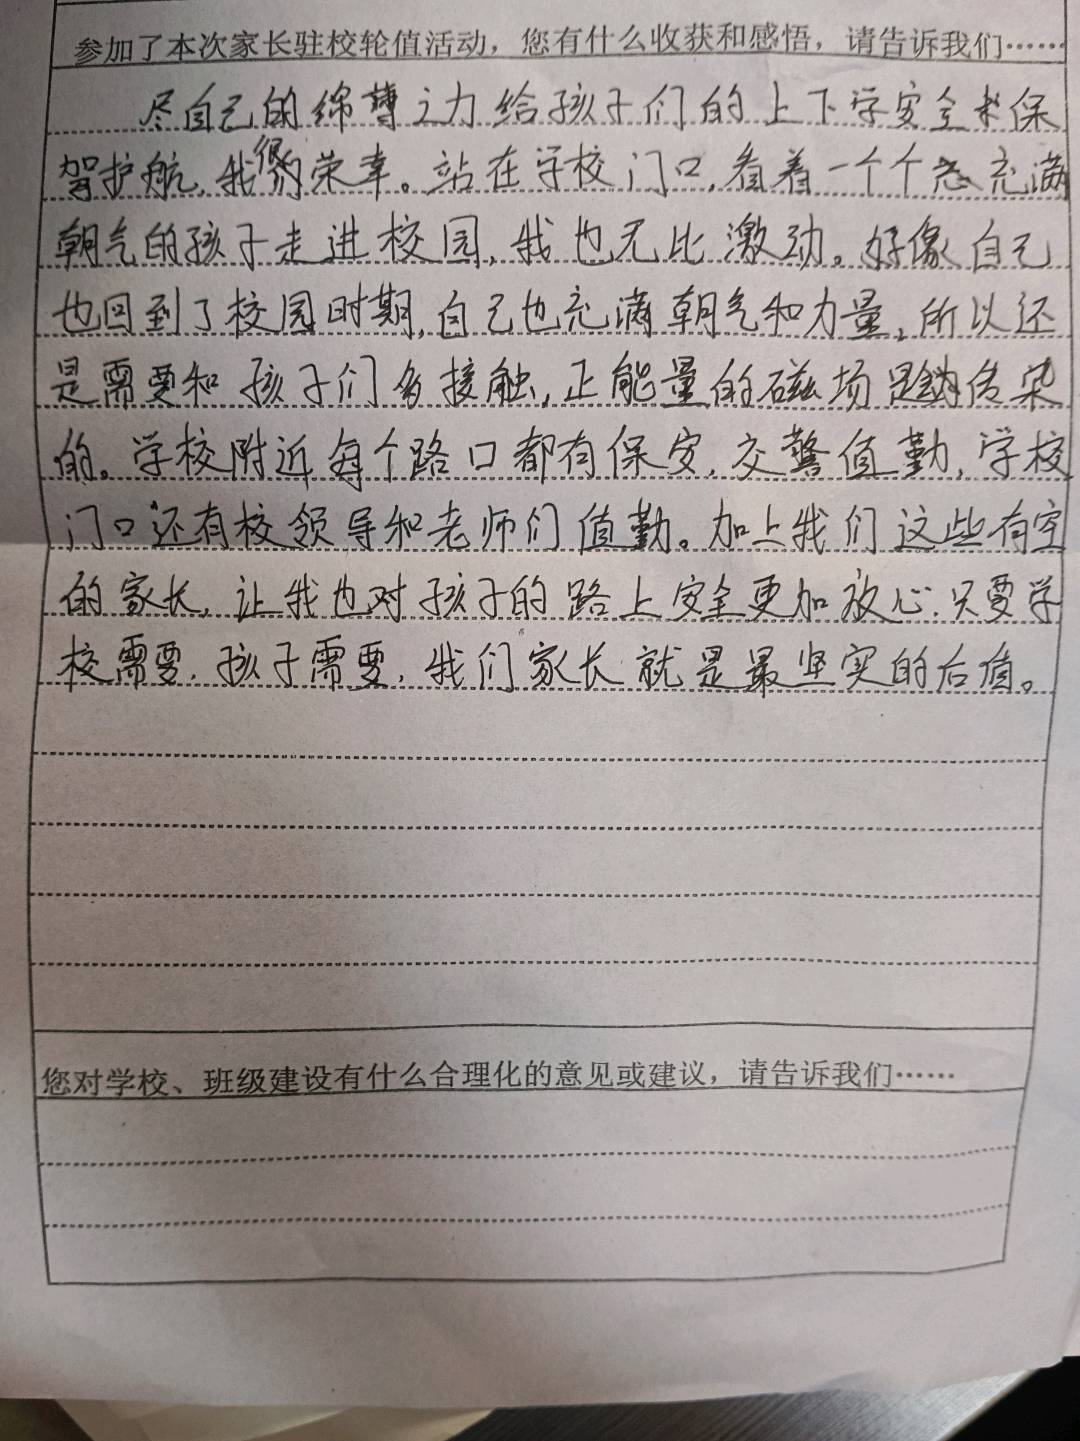 参加了本次家长驻校轮值活动，您有什么收获和感悟，请告诉我们……
尽自己的绵薄之力给孩子们的上下学安全保
驾护航，我很荣幸。站在学校门口，看着一个个充满
朝气的孩子走进校园，我也无比激动。好像自己
也回到了校园时期，自己也充满朝气和力量，所以还
是需要和孩子们多接触，正能量的磁场是传染
的。学校附近每个路口都有保安，交警值勤，学校
门口还有校领导和老师们值勤。加上我们这些有空
的家长，让我也对孩子的路上安全更加放心.只要学
校需要，孩子需要，我们家长就是最坚实的后盾。
您对学校、班级建设有什么合理化的意见或建议，请告诉我们……